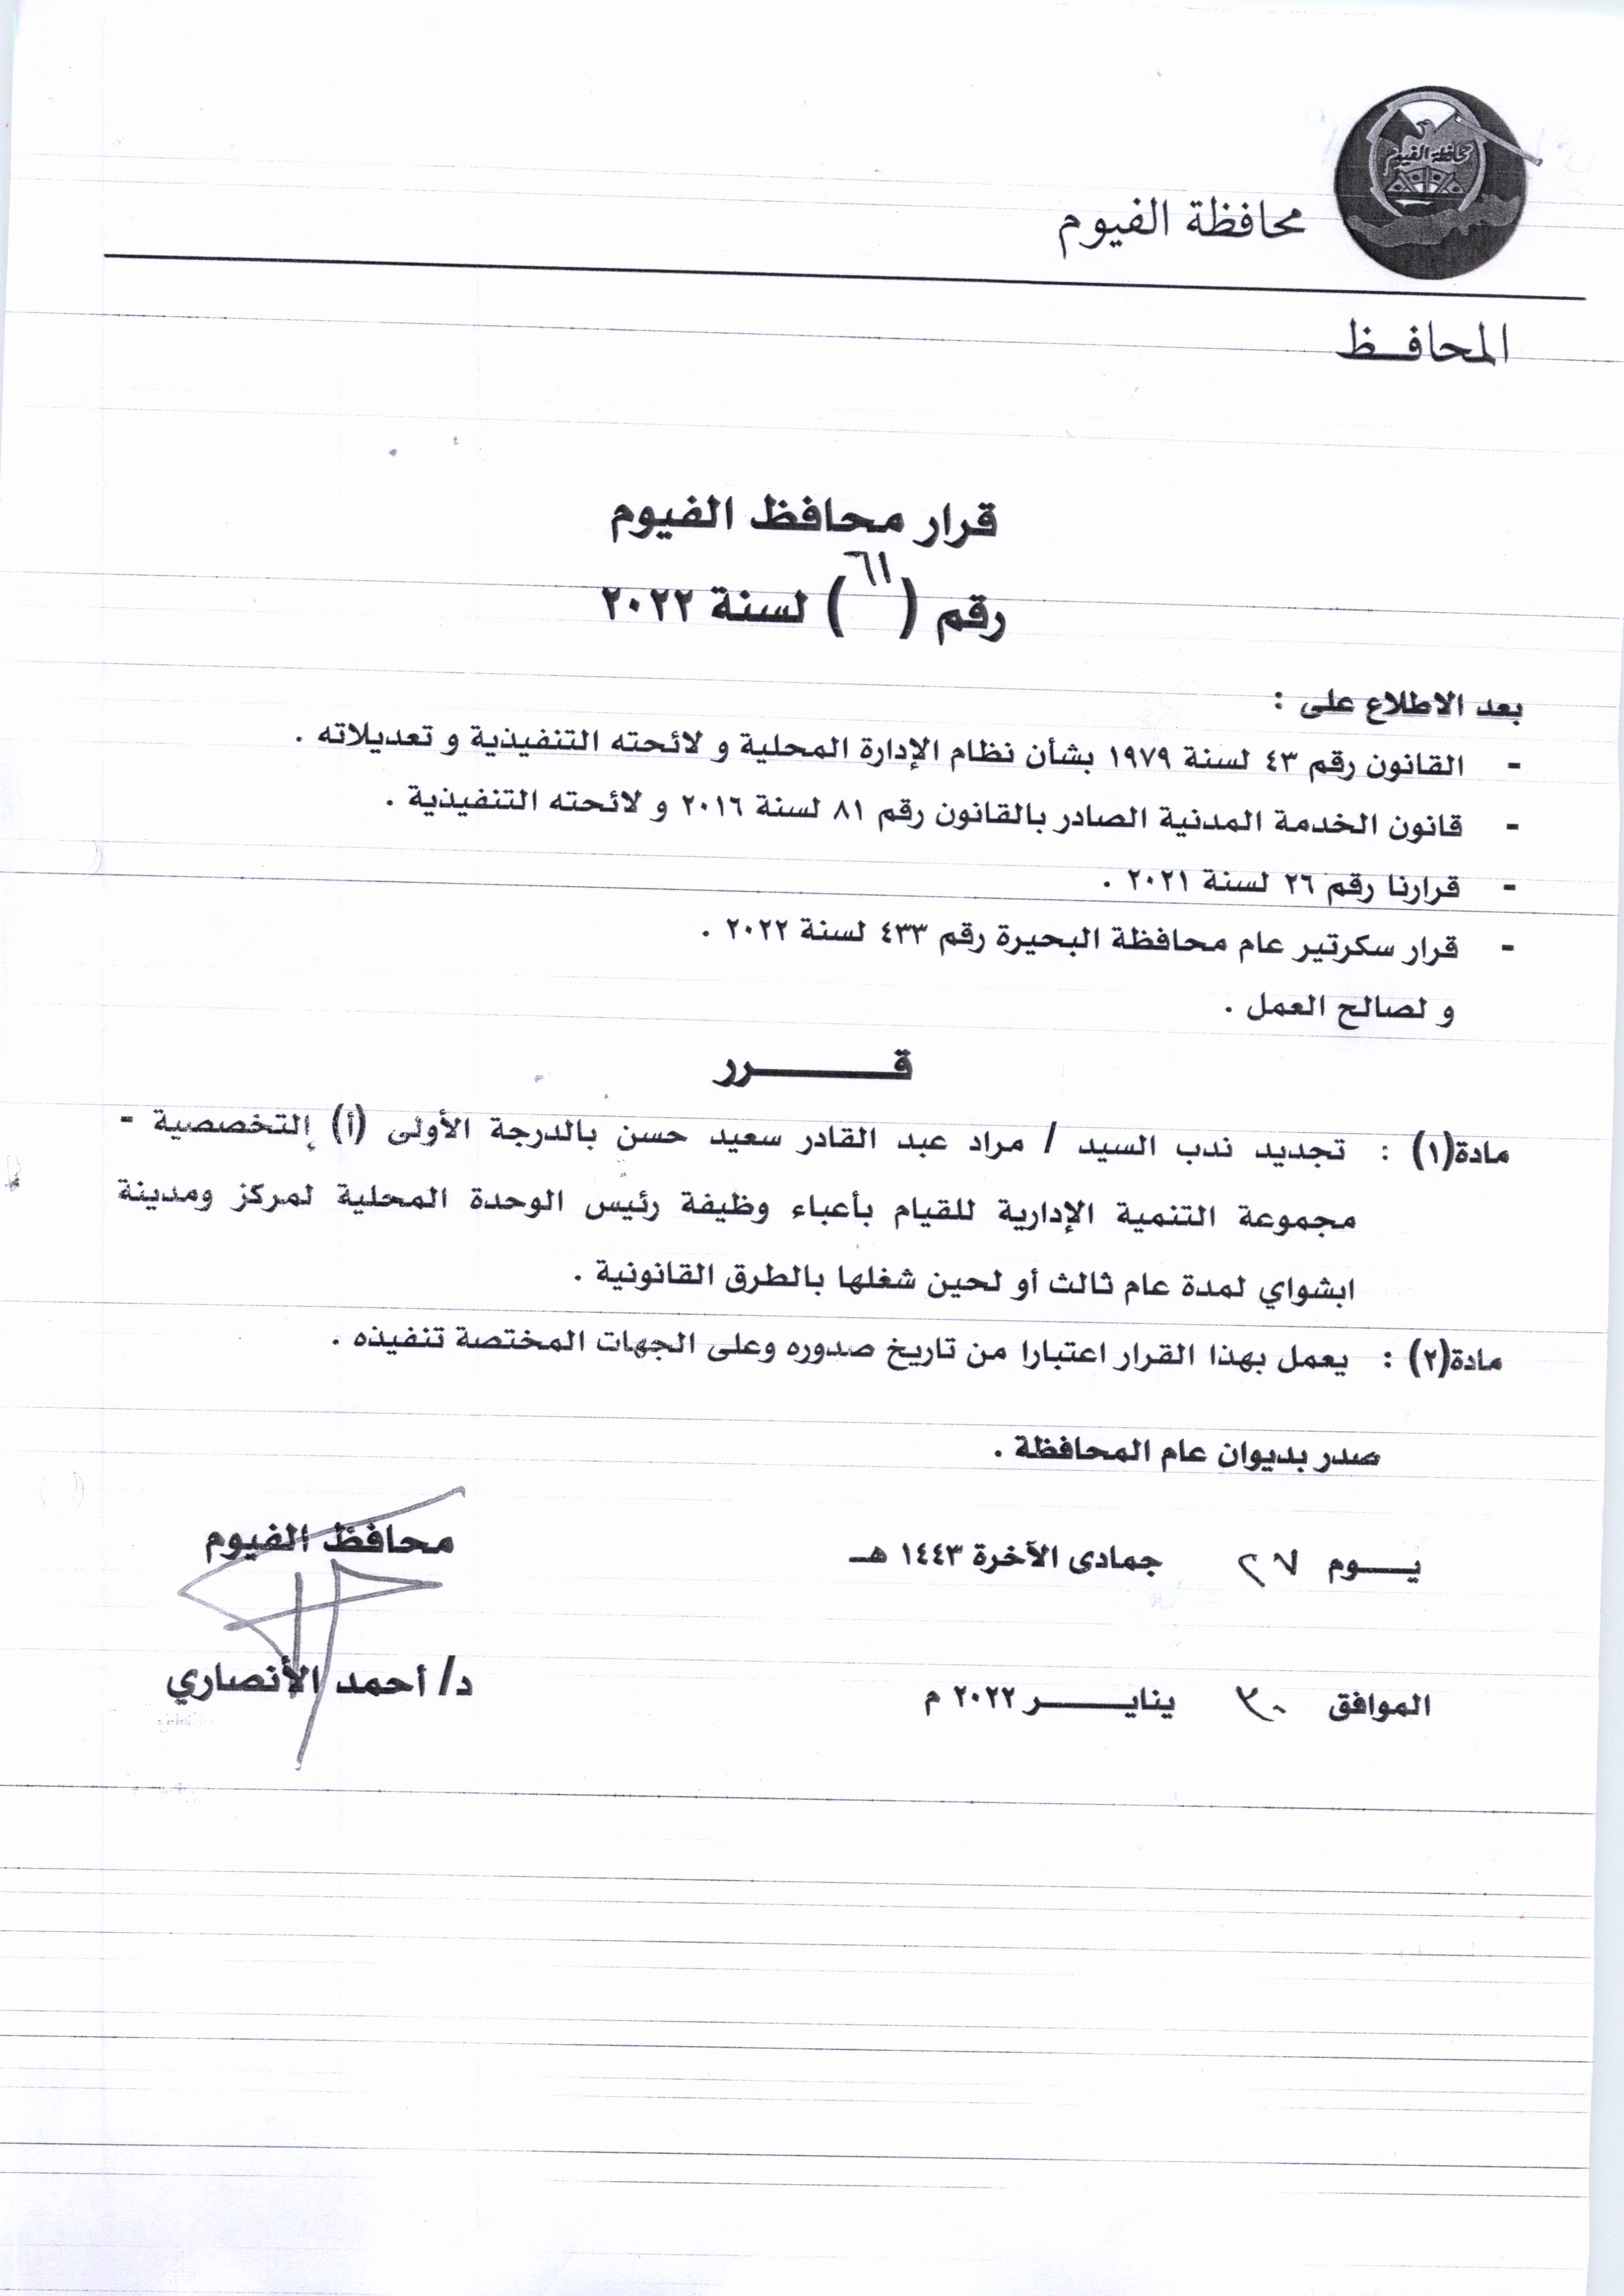 محافظة الفيوم
محافظة الفيوم
المحافــظ
قرار محافظ الفيوم
رقم ( ٦١ ) لسنة ٢٠٢٢
بعد الاطلاع على :
- القانون رقم ٤٣ لسنة ١٩٧٩ بشأن نظام الإدارة المحلية و لائحته التنفيذية و تعديلاته .
- قانون الخدمة المدنية الصادر بالقانون رقم ٨١ لسنة ٢٠١٦ و لائحته التنفيذية .
- قرارنا رقم ٢٦ لسنة ٢٠٢١ .
- قرار سكرتير عام محافظة البحيرة رقم ٤٣٣ لسنة ٢٠٢٢ .
و لصالح العمل .
قـــــــــرر
مادة(١) : تجديد ندب السيد / مراد عبد القادر سعيد حسن بالدرجة الأولى (أ) التخصصية -
مجموعة التنمية الإدارية للقيام بأعباء وظيفة رئيس الوحدة المحلية لمركز ومدينة
ابشواي لمدة عام ثالث أو لحين شغلها بالطرق القانونية .
مادة(٢) : يعمل بهذا القرار اعتبارا من تاريخ صدوره وعلى الجهات المختصة تنفيذه .
صدر بديوان عام المحافظة .
محافظ الفيوم
يـــــوم ٢٧ جمادى الآخرة ١٤٤٣ هـ
د/ أحمد الأنصاري
الموافق ٣٠ ينايـــــــــر ٢٠٢٢ م